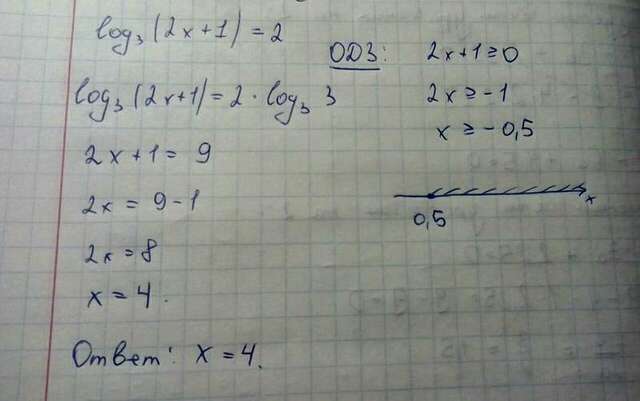 log₃(2x+1)=2
log₃(2x+1)=2·log₃ 3
2x+1=9
2x=9-1
2x=8
x=4.
Ответ: x=4.
ОДЗ: 2x+1≥0
2x≥-1
x≥-0,5
x
0,5